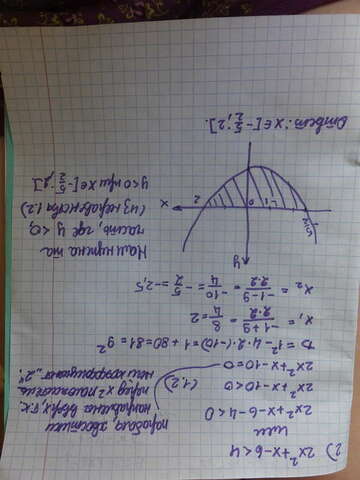 2) 2x²+x-6<4
или
2x²+x-6-4<0
2x²+x-10<0 (1,2)
2x²+x-10=0
парабола, хвостики
направлена вверх, т.к.
перед x² положитель
ный коэффициент "2".
D=1²-4·2·(-10)=1+80=81=9²
x₁ = -1+9/2·2 = 8/4 = 2
x₂ = -1-9/2·2 = -10/4 = -5/2 = -2,5
Нам нужна та
часть, где y<0,
(из неравенства 1.2)
y<0 при x∈[-5/2;2].
y
x
0
1
2
Ответ: x∈[-5/2;2].